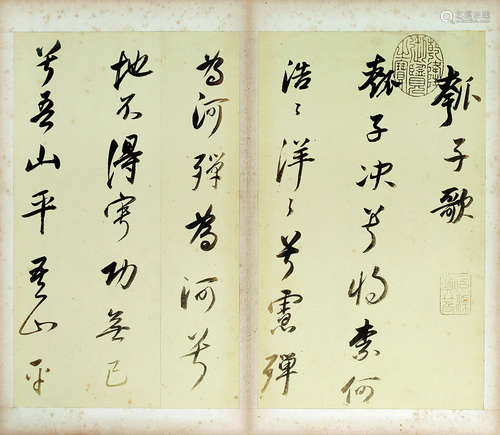 瓠子歌
瓠子决兮将柰何
浩〻洋〻兮慮殫
為河殫為河兮
地不得寧功無已
兮吾山平吾山平